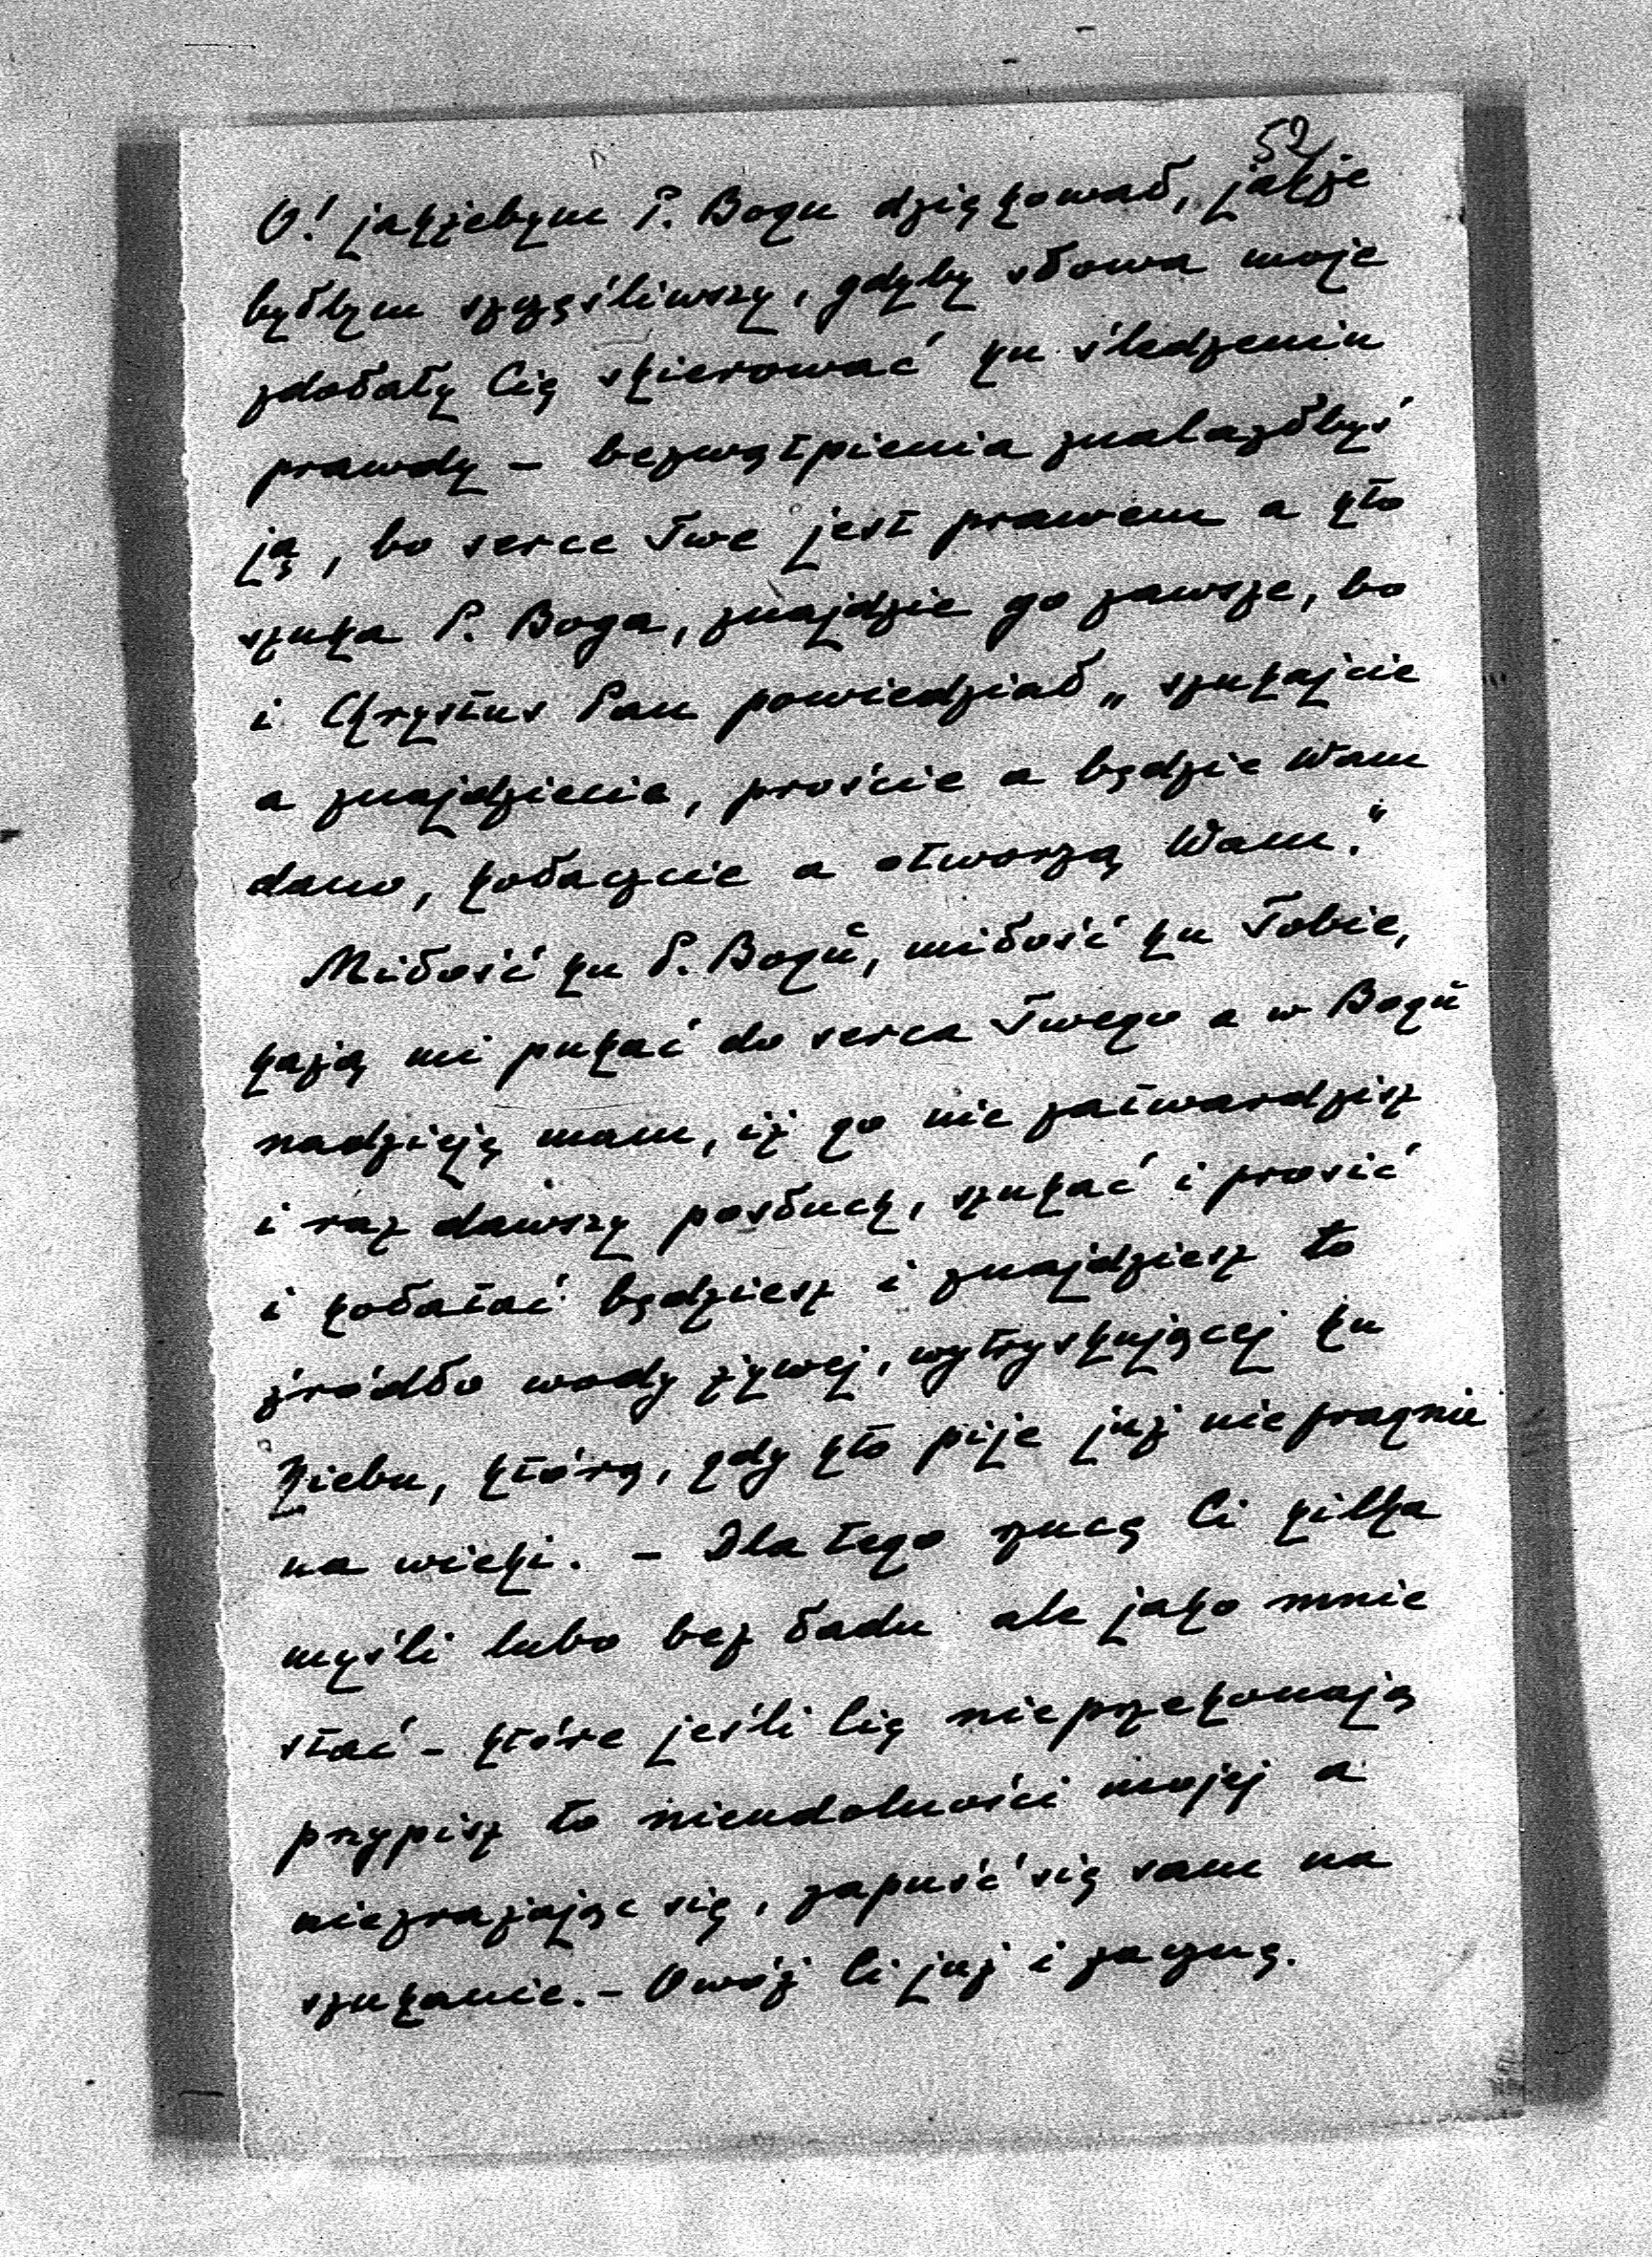 52
O! jakżebym P. Bogu dziękował, jakże
byłbym szczęśliwszy, gdyby słowa moje
zdołały Cię skierować ku śledzeniu
prawdy – bezwątpienia znalazłbyś
ją, bo serce Twe jest prawem a kto
szuka P. Boga, znajdzie go zawsze, bo
i Chrystus Pan powiedział „szukajcie
a znajdziecie, proście a będzie Wam
dano, kołaczcie a otworzą Wam."
Miłość ku P. Bogu, miłość ku Tobie,
każą mi pukać do serca Twego a w Bogu
nadzieję mam, iż go nie zatwardzisz
i raz dawszy posłuch, szukać i prosić
i kołatać będziesz i znajdziesz to
źródło wody żywej, wytryskującej ku
Niebu, którą, gdy kto pije już nie pragnie
na wieki. – Dla tego rzucę Ci kilka
myśli lubo bez ładu ale jako mnie
stać – które jeśli Cię nieprzekonają
przypisz to nieudolności mojej a
niezrażając się, zapuść się sam na
szukanie. – Owóż Ci już i zacznę.